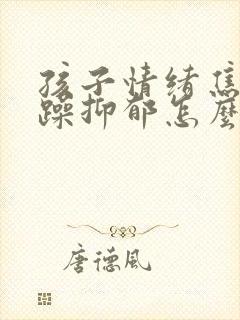 孩子情绪焦
躁抑郁怎麽
唐德风